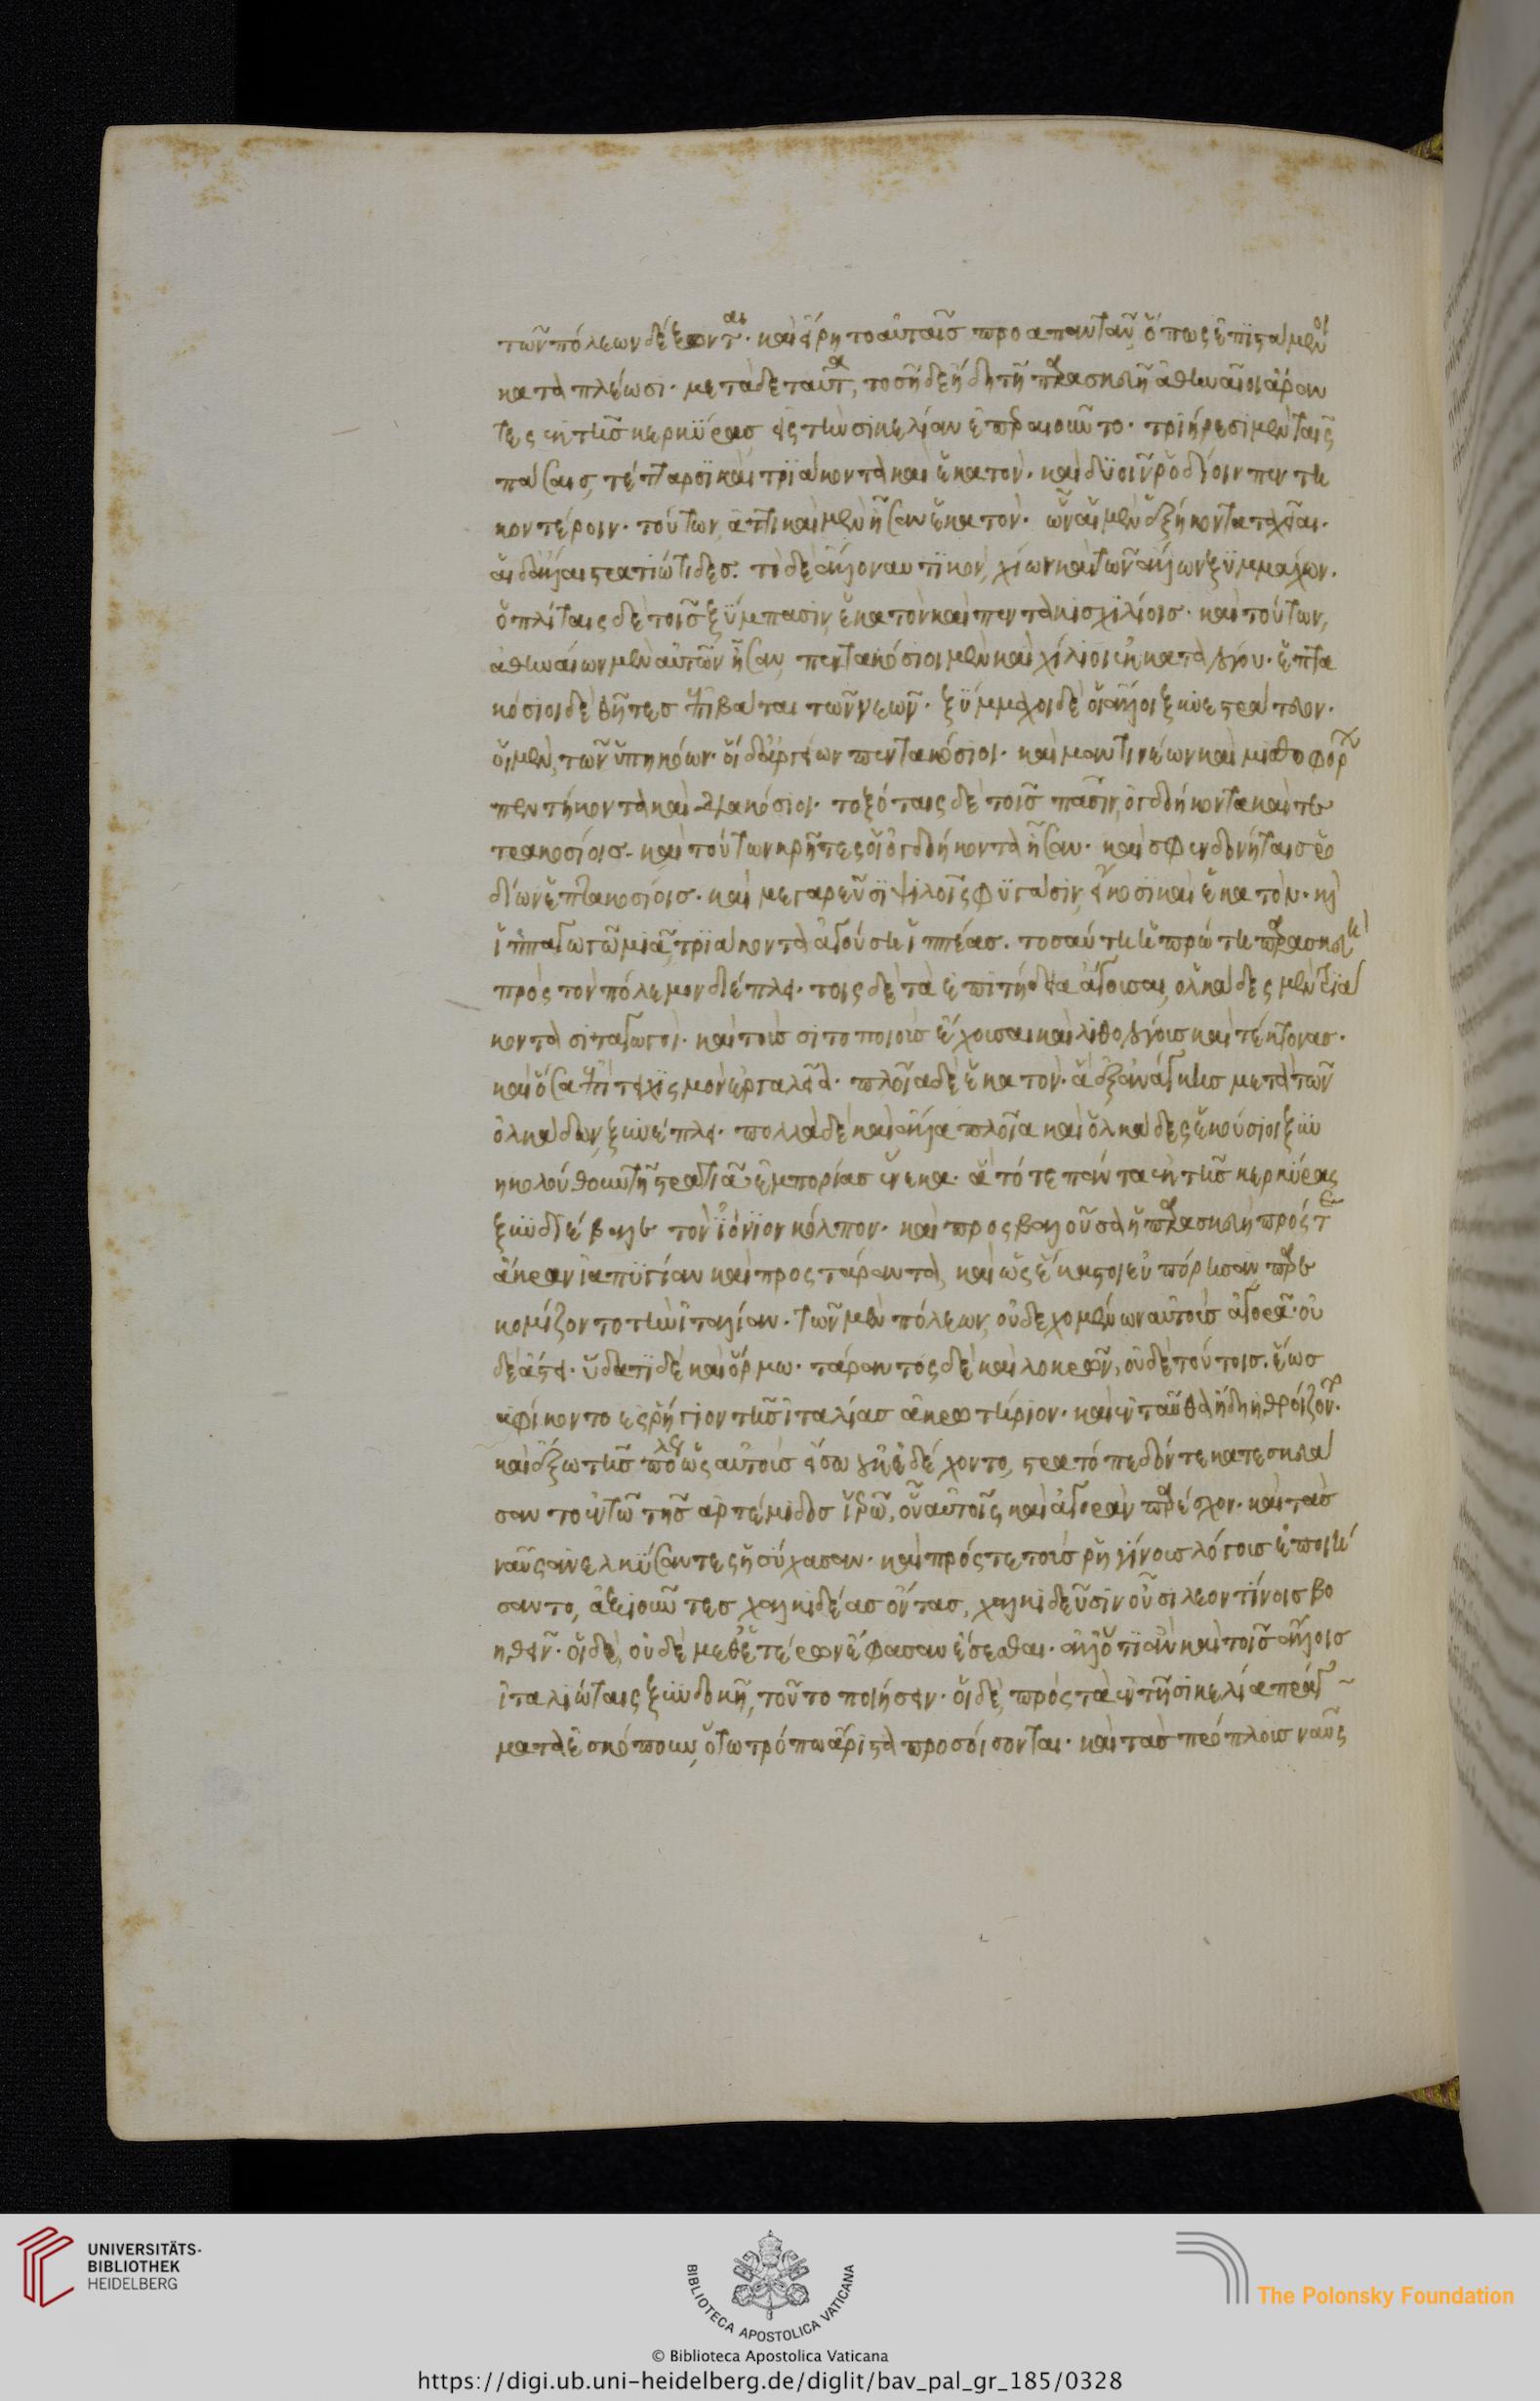 τῶν πόλεων δέξονται· καὶ εἴρητο αὐταῖς προαπαντᾶν, ὅπως ἐπιστάμενοι
καταπλέωσι· μετὰ δὲ ταῦτα, τοσῇδε ἤδη τῇ παρασκευῇ ἀθηναῖοι ἄραν
τες ἐκ τῆς κερκύρας ἐς τὴν σικελίαν ἐπεραιοῦντο· τριήρεσι μὲν ταῖς
πάσαις, τέτταρσι καὶ τριάκοντα καὶ ἑκατὸν· καὶ δυοῖν ῥοδίοιν πεντη
κοντέροιν· τούτων, ἀττικαὶ μὲν ἦσαν ἑκατὸν· ὧν αἱ μὲν ἑξήκοντα ταχεῖαι·
αἱ δ' ἄλλαι στρατιώτιδες. τὸ δὲ ἄλλο ναυτικὸν, χίων καὶ τῶν ἄλλων ξυμμάχων·
ὁπλίταις δὲ τοῖς ξύμπασιν, ἑκατὸν καὶ πεντακισχιλίοις· καὶ τούτων,
ἀθηναίων μὲν αὐτῶν ἦσαν, πεντακόσιοι μὲν καὶ χίλιοι ἐκ καταλόγου· ἑπτα
κόσιοι δὲ θῆτες ἐπιβάται τῶν νεῶν· ξύμμαχοι δὲ οἱ ἄλλοι ξυνεστράτευον·
οἱ μὲν, τῶν ὑπηκόων· οἱ δ' ἀργείων πεντακόσιοι· καὶ μαντινέων καὶ μισθοφόρων
πεντήκοντα καὶ διακόσιοι· τοξόταις δὲ τοῖς πᾶσιν, ὀγδοήκοντα καὶ τε
τρακοσίοις· καὶ τούτων κρῆτες οἱ ὀγδοήκοντα ἦσαν· καὶ σφενδονήταις ῥο
δίων ἑπτακοσίοις· καὶ μεγαρεῦσι ψιλοῖς φυγάσιν, εἴκοσι καὶ ἑκατὸν· καὶ
ἱππαγωγῷ μιᾷ, τριάκοντα ἀγούσῃ ἱππέας. τοσαύτη ἡ πρώτη παρασκευὴ
πρὸς τὸν πόλεμον διέπλει· τοῖς δὲ τὰ ἐπιτήδεια ἄγουσαι, ὁλκάδες μὲν τριά
κοντα σιταγωγοὶ· καὶ τοὺς σιτοποιοὺς ἔχουσαι καὶ λιθολόγους καὶ τέκτονας·
καὶ ὅσα ἐπὶ τειχισμὸν ἐργαλεῖα· πλοῖα δὲ ἑκατὸν· ἃ ἐξ ἀνάγκης μετὰ τῶν
ὁλκάδων, ξυνέπλει· πολλὰ δὲ καὶ ἄλλα πλοῖα καὶ ὁλκάδες ἑκούσιοι ξυν
ηκολούθουν τῇ στρατιᾷ ἐμπορίας ἕνεκα· ἃ τότε πάντα ἐκ τῆς κερκύρας
ξυνδιέβαλλε τὸν ἰόνιον κόλπον· καὶ προσβαλοῦσα ἡ παρασκευὴ πρός τε
ἄκραν ἰαπυγίαν καὶ πρὸς τάραντα, καὶ ὡς ἕκαστοι εὐπόρησαν, παρε
κομίζοντο τὴν ἰταλίαν· τῶν μὲν πόλεων, οὐ δεχομένων αὐτοὺς ἀγορᾷ· οὐ
δὲ ἄστει· ὕδατι δὲ καὶ ὅρμω· τάραντος δὲ καὶ λοκρῶν, οὐδὲ τούτοις. ἕως
ἀφίκοντο ἐς ῥήγιον τῆς ἰταλίας ἀκρωτήριον· καὶ ἐνταῦθα ἤδη ἠθροίζοντο·
καὶ ἔξω τῆς πόλεως ὡς αὐτοὺς εἴσω οὐκ ἐδέχοντο, στρατόπεδόν τε κατεσκευά
σαντο ἐν τῷ τῆς ἀρτέμιδος ἱερῷ, οὗ αὐτοῖς, καὶ ἀγορὰν παρέσχον· καὶ τὰς
ναῦς ἀνελκύσαντες ἡσύχασαν· καὶ πρός τε τοὺς ῥηγίνους λόγους ἐποιή
σαντο, ἀξιοῦντες χαλκιδέας ὄντας, χαλκιδεῦσιν οὖσι λεοντίνοις βο
ηθεῖν· οἱ δὲ, οὐδὲ μεθ' ἑτέρων ἔφασαν ἔσεσθαι· ἀλλ' ὅτι ἂν καὶ τοῖς ἄλλοις
ἰταλιώταις ξυνδοκῇ, τοῦτο ποιήσειν· οἱ δὲ, πρὸς τὰ ἐν τῇ σικελία πράγ
ματα ἐσκόπουν, ὅτω τρόπω ἄριστα προσοίσονται· καὶ τὰς πρόπλους ναῦς
UNIVERSITÄTS-
BIBLIOTHEK
HEIDELBERG
BIBLIOTECA APOSTOLICA VATICANA
The Polonsky Foundation
© Biblioteca Apostolica Vaticana
https://digi.ub.uni-heidelberg.de/diglit/bav_pal_gr_185/0328